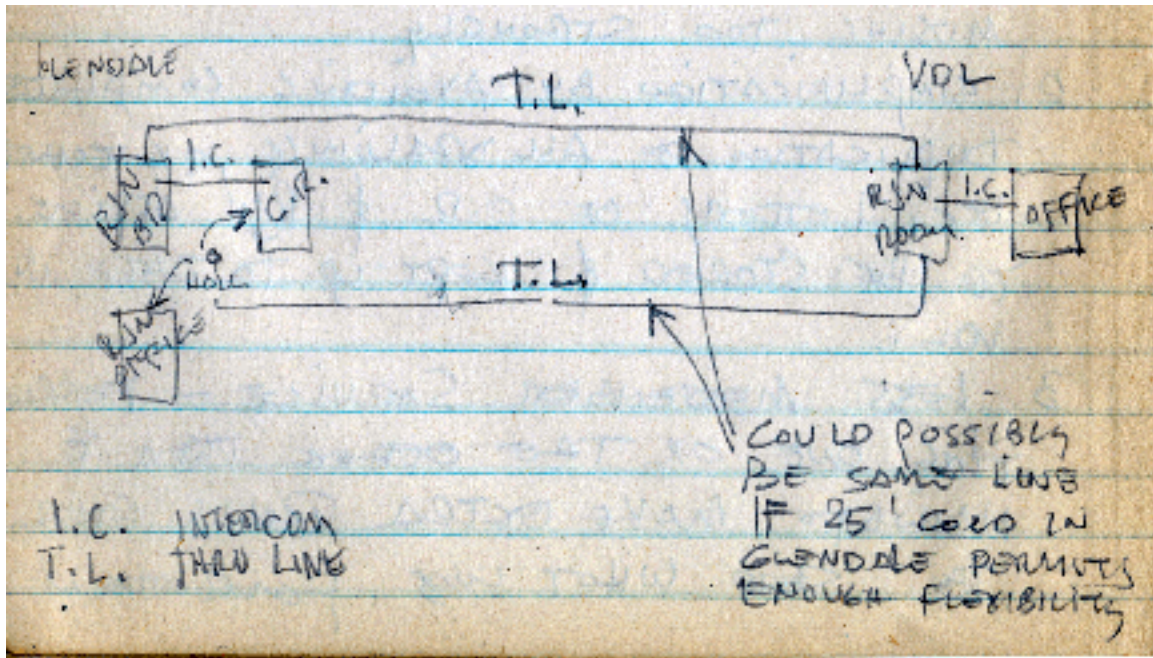 GLENDALE
VDL
T.L.
I.C.
RJN
BR
C.R.
RJN
ROOM
I.C.
OFFICE
HALL
T.L.
RJN
OFFICE
COULD POSSIBLY
BE SAME LINE
IF 25' CORD IN
GLENDALE PERMITS
ENOUGH FLEXIBILITY
I.C. INTERCOM
T.L. THRU LINE